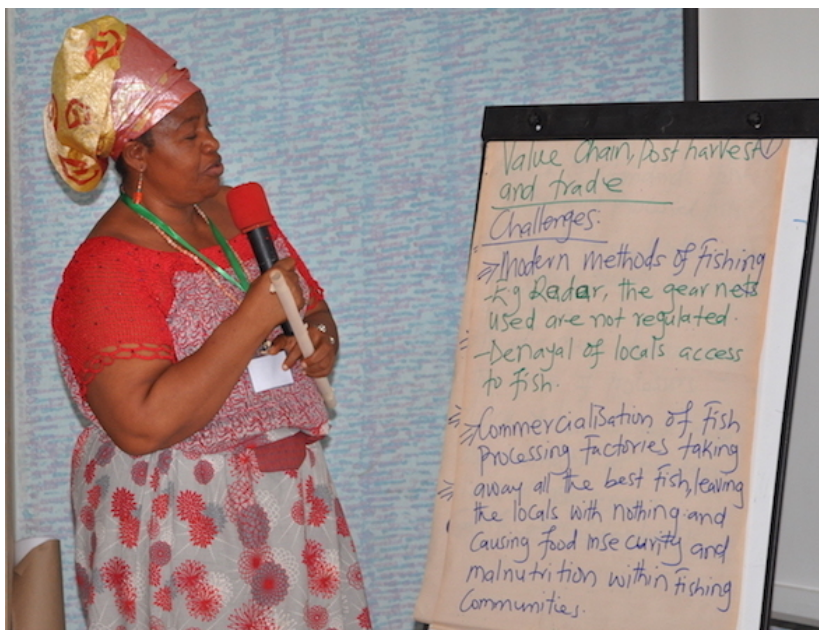 Value Chain, Post harvest
and trade
Challenges:
Modern methods of Fishing
- E.g Radar, the gear nets
used are not regulated.
- Denayal of locals access
to fish.
Commercialisation of fish
processing factories taking
away all the best fish, leaving
the locals with nothing and
causing food insecurity and
malnutrition within fishing
communities.